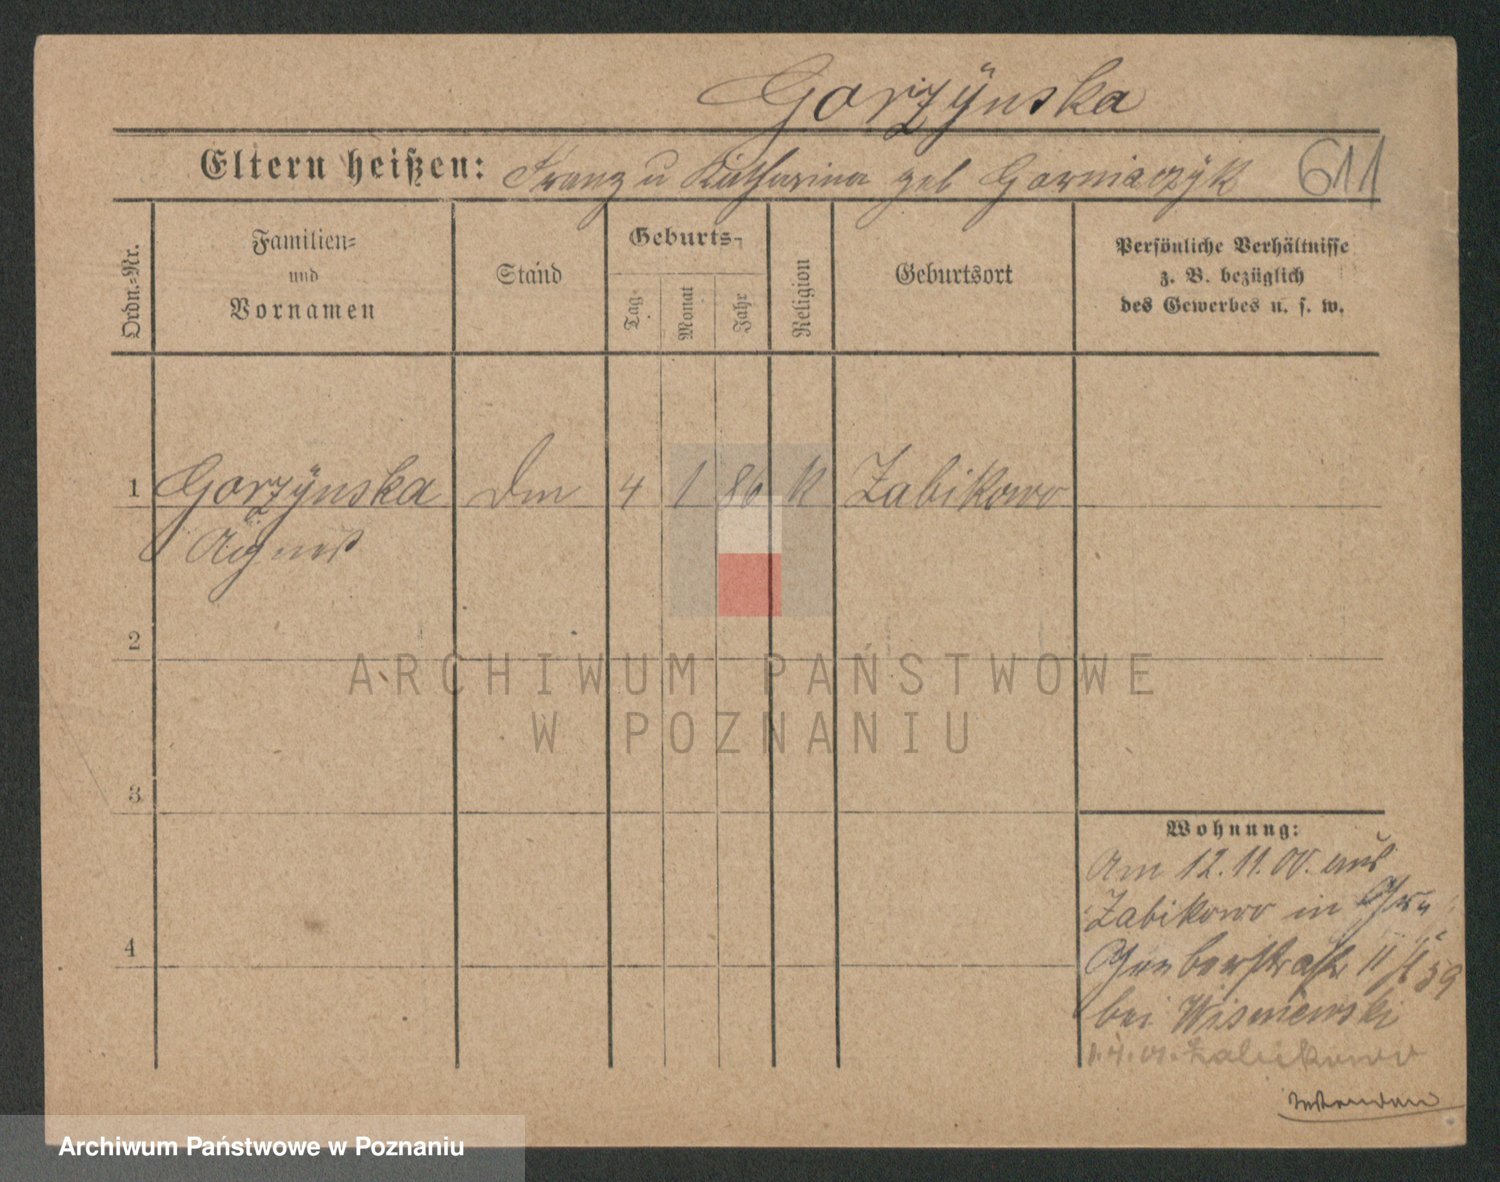 Gorzÿnska
Eltern heißen: Franz u Katharina geb Garniaczÿk
611
Ordn.-Nr.
Familien-
und
Vornamen
Stand
Geburts-
Tag
Monat
Jahr
Religion
Geburtsort
Persönliche Verhältnisse
z. B. bezüglich
des Gewerbes u. s. w.
1 Gorzÿnska Dm 4 1 86 K Zabikowo
Agnes
2
3
4
Wohnung:
Am 12.11.00. aus
Zabikowo in
II 59
bei Wisniewski
1.4.01. Zabikowo
ARCHIWUM PAŃSTWOWE
W POZNANIU
Archiwum Państwowe w Poznaniu